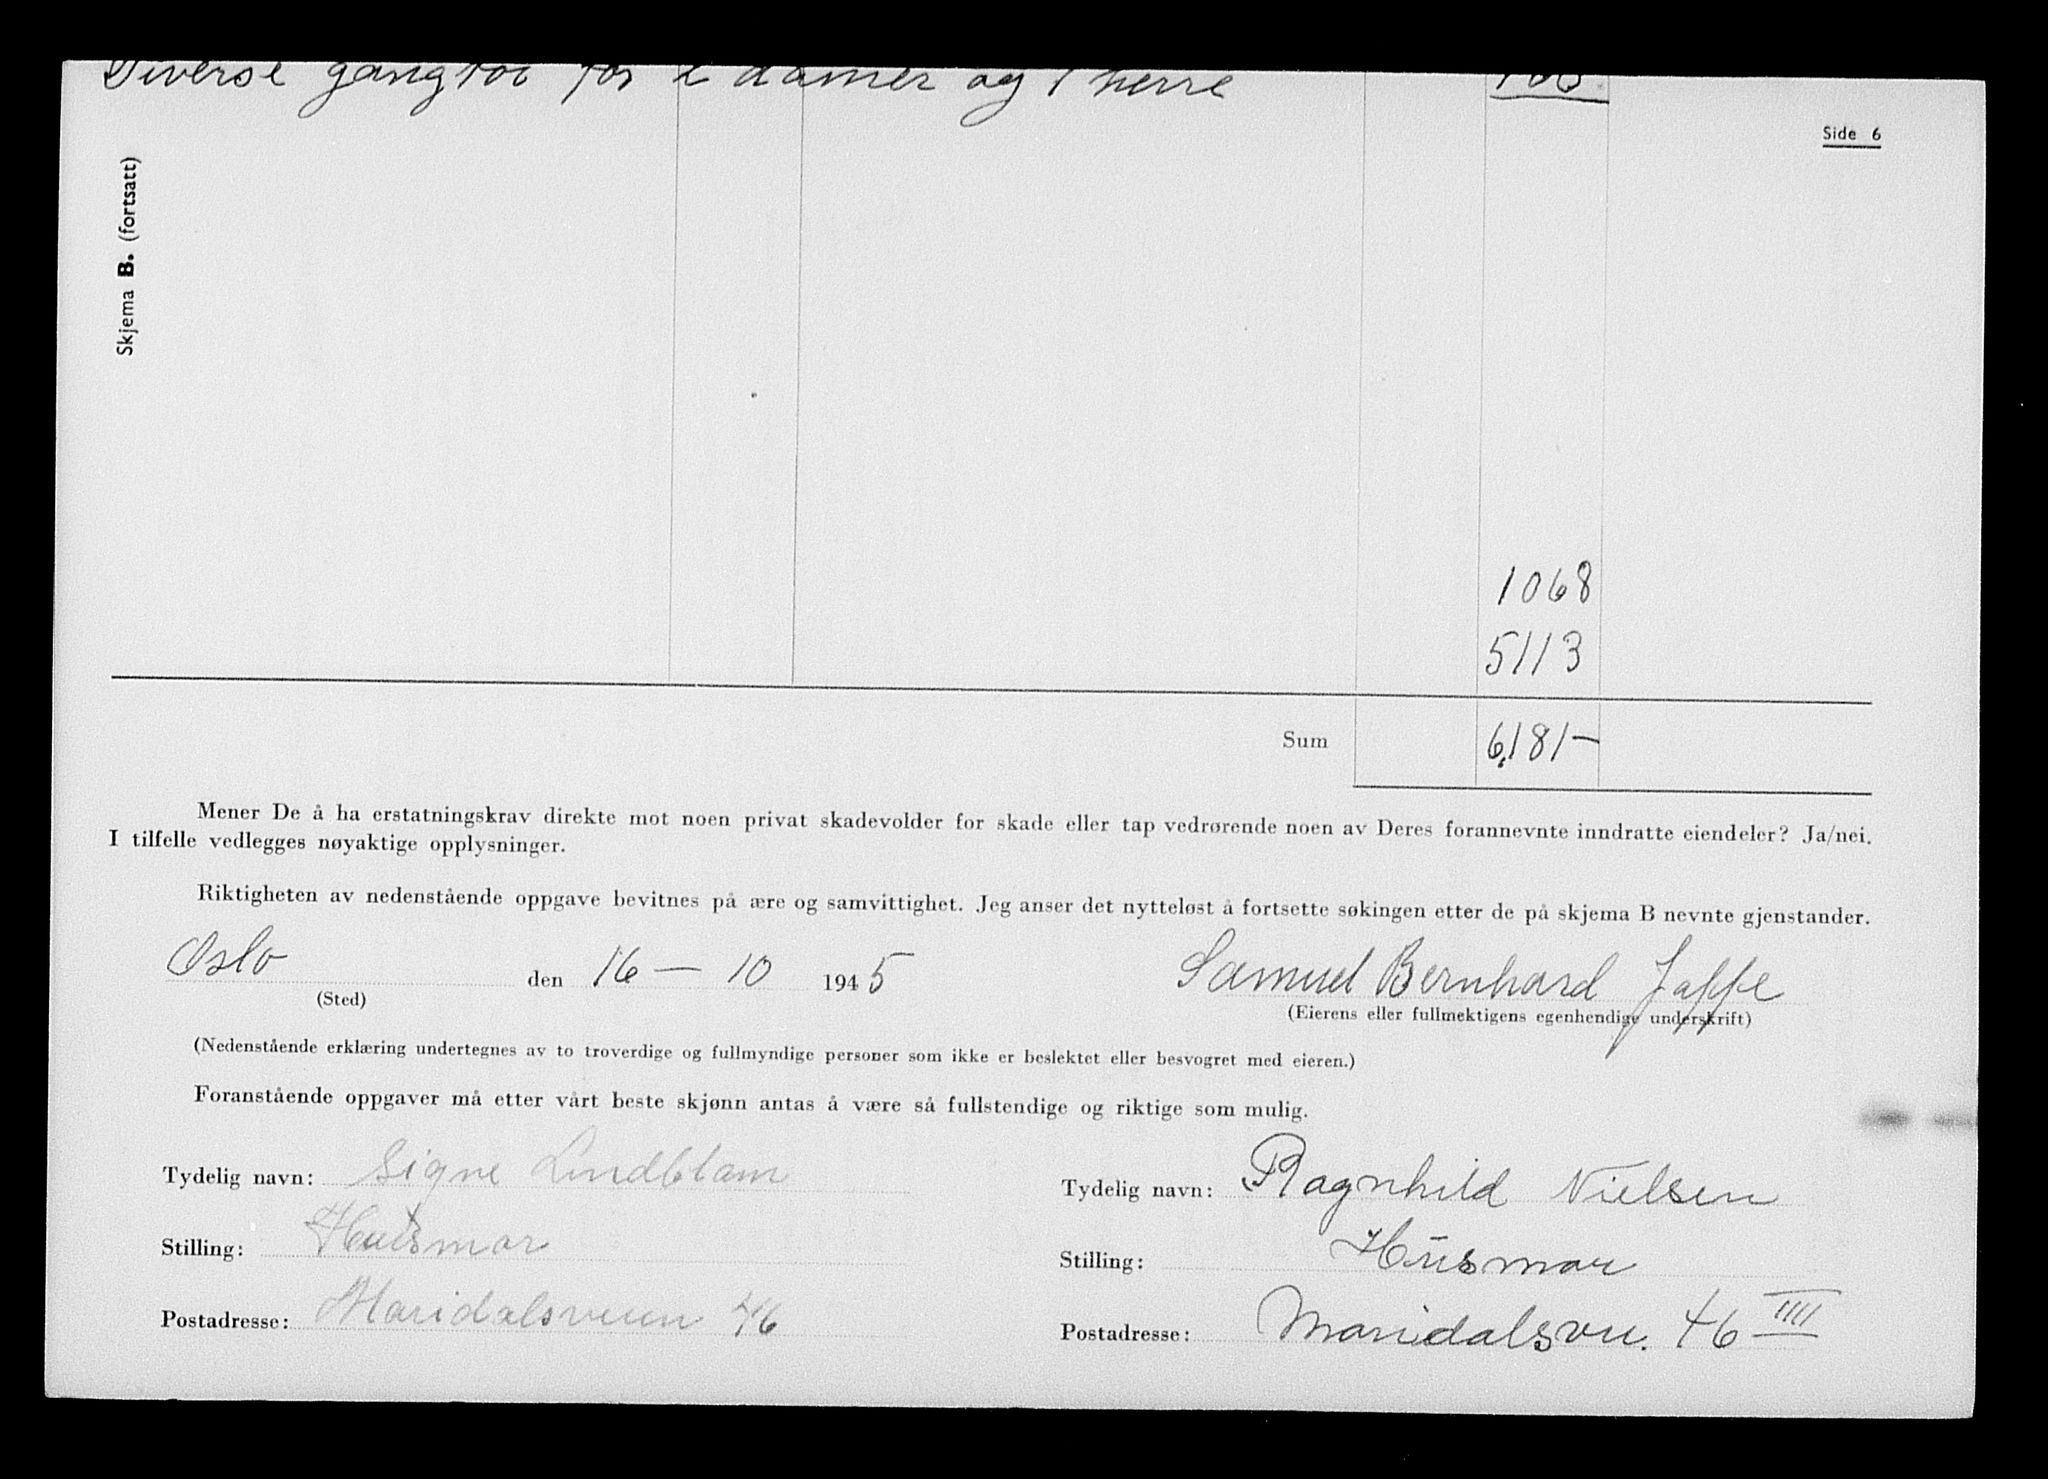 Diverse gangtöi for 2 damer og 1 herre 100.
Side 6
Skjema B. (fortsatt)
1068
5113
Sum 6.181-
Mener De å ha erstatningskrav direkte mot noen privat skadevolder for skade eller tap vedrørende noen av Deres forannevnte inndratte eiendeler? Ja/nei.
I tilfelle vedlegges nøyaktige opplysninger.
Riktigheten av nedenstående oppgave bevitnes på ære og samvittighet. Jeg anser det nytteløst å fortsette søkingen etter de på skjema B nevnte gjenstander.
Oslo den 16 - 10 1945 Samuel Bernhard Jaffe
(Sted) (Eierens eller fullmektigens egenhendige underskrift)
(Nedenstående erklæring undertegnes av to troverdige og fullmyndige personer som ikke er beslektet eller besvogret med eieren.)
Foranstående oppgaver må etter vårt beste skjønn antas å være så fullstendige og riktige som mulig.
Tydelig navn: Signe Lindblom Tydelig navn: Ragnhild Nielsen
Stilling: Husmor Stilling: Husmor
Postadresse: Maridalsveien 46 Postadresse: Maridalsvei. 46 IIII